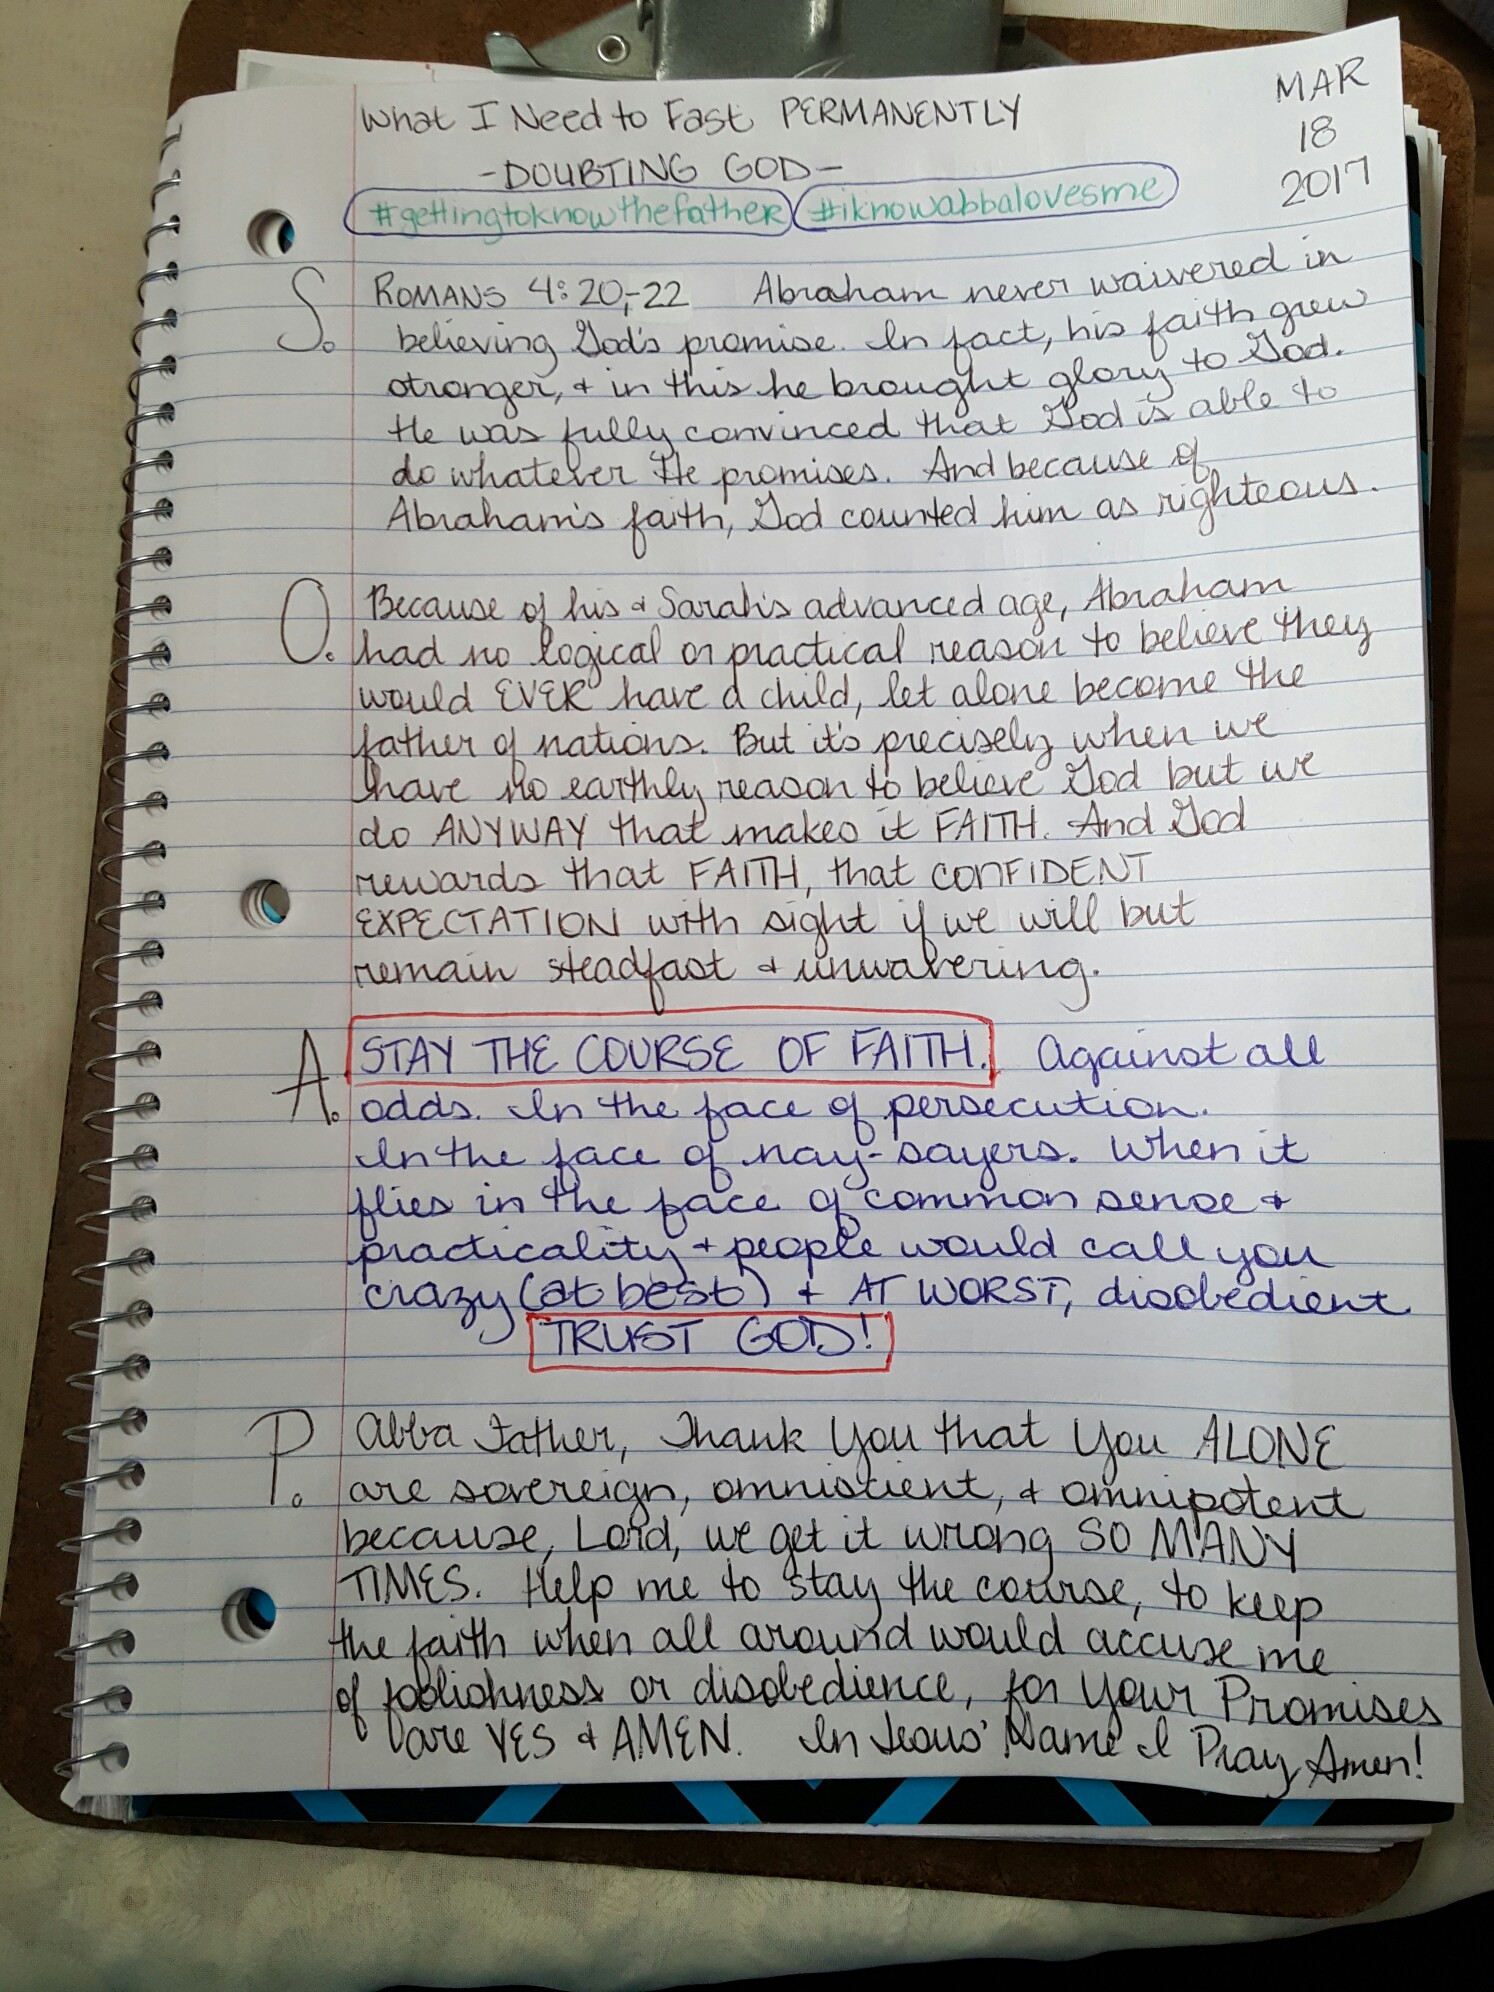 What I Need to Fast PERMANENTLY
MAR
18
2017
-DOUBTING GOD-
#gettingtoknowthefather #iknowabbalovesme
S. ROMANS 4:20,-22 Abraham never waivered in
believing God's promise. In fact, his faith grew
stronger, & in this he brought glory to God.
He was fully convinced that God is able to
do whatever He promises. And because of
Abraham's faith, God counted him as righteous.
O. Because of his & Sarah's advanced age, Abraham
had no logical or practical reason to believe they
would EVER have a child, let alone become the
father of nations. But it's precisely when we
have no earthly reason to believe God but we
do ANYWAY that makes it FAITH. And God
rewards that FAITH, that CONFIDENT
EXPECTATION with sight if we will but
remain steadfast & unwavering.
A. STAY THE COURSE OF FAITH. Against all
odds. In the face of persecution.
In the face of nay-sayers. When it
flies in the face of common sense &
practicality & people would call you
crazy (at best) & AT WORST, disobedient
TRUST GOD!
P. Abba Father, Thank You that You ALONE
are sovereign, omniscient, & omnipotent
because, Lord, we get it wrong SO MANY
TIMES. Help me to stay the course, to keep
the faith when all around would accuse me
of foolishness or disobedience, for Your Promises
are YES & AMEN. In Jesus' Name I Pray Amen!